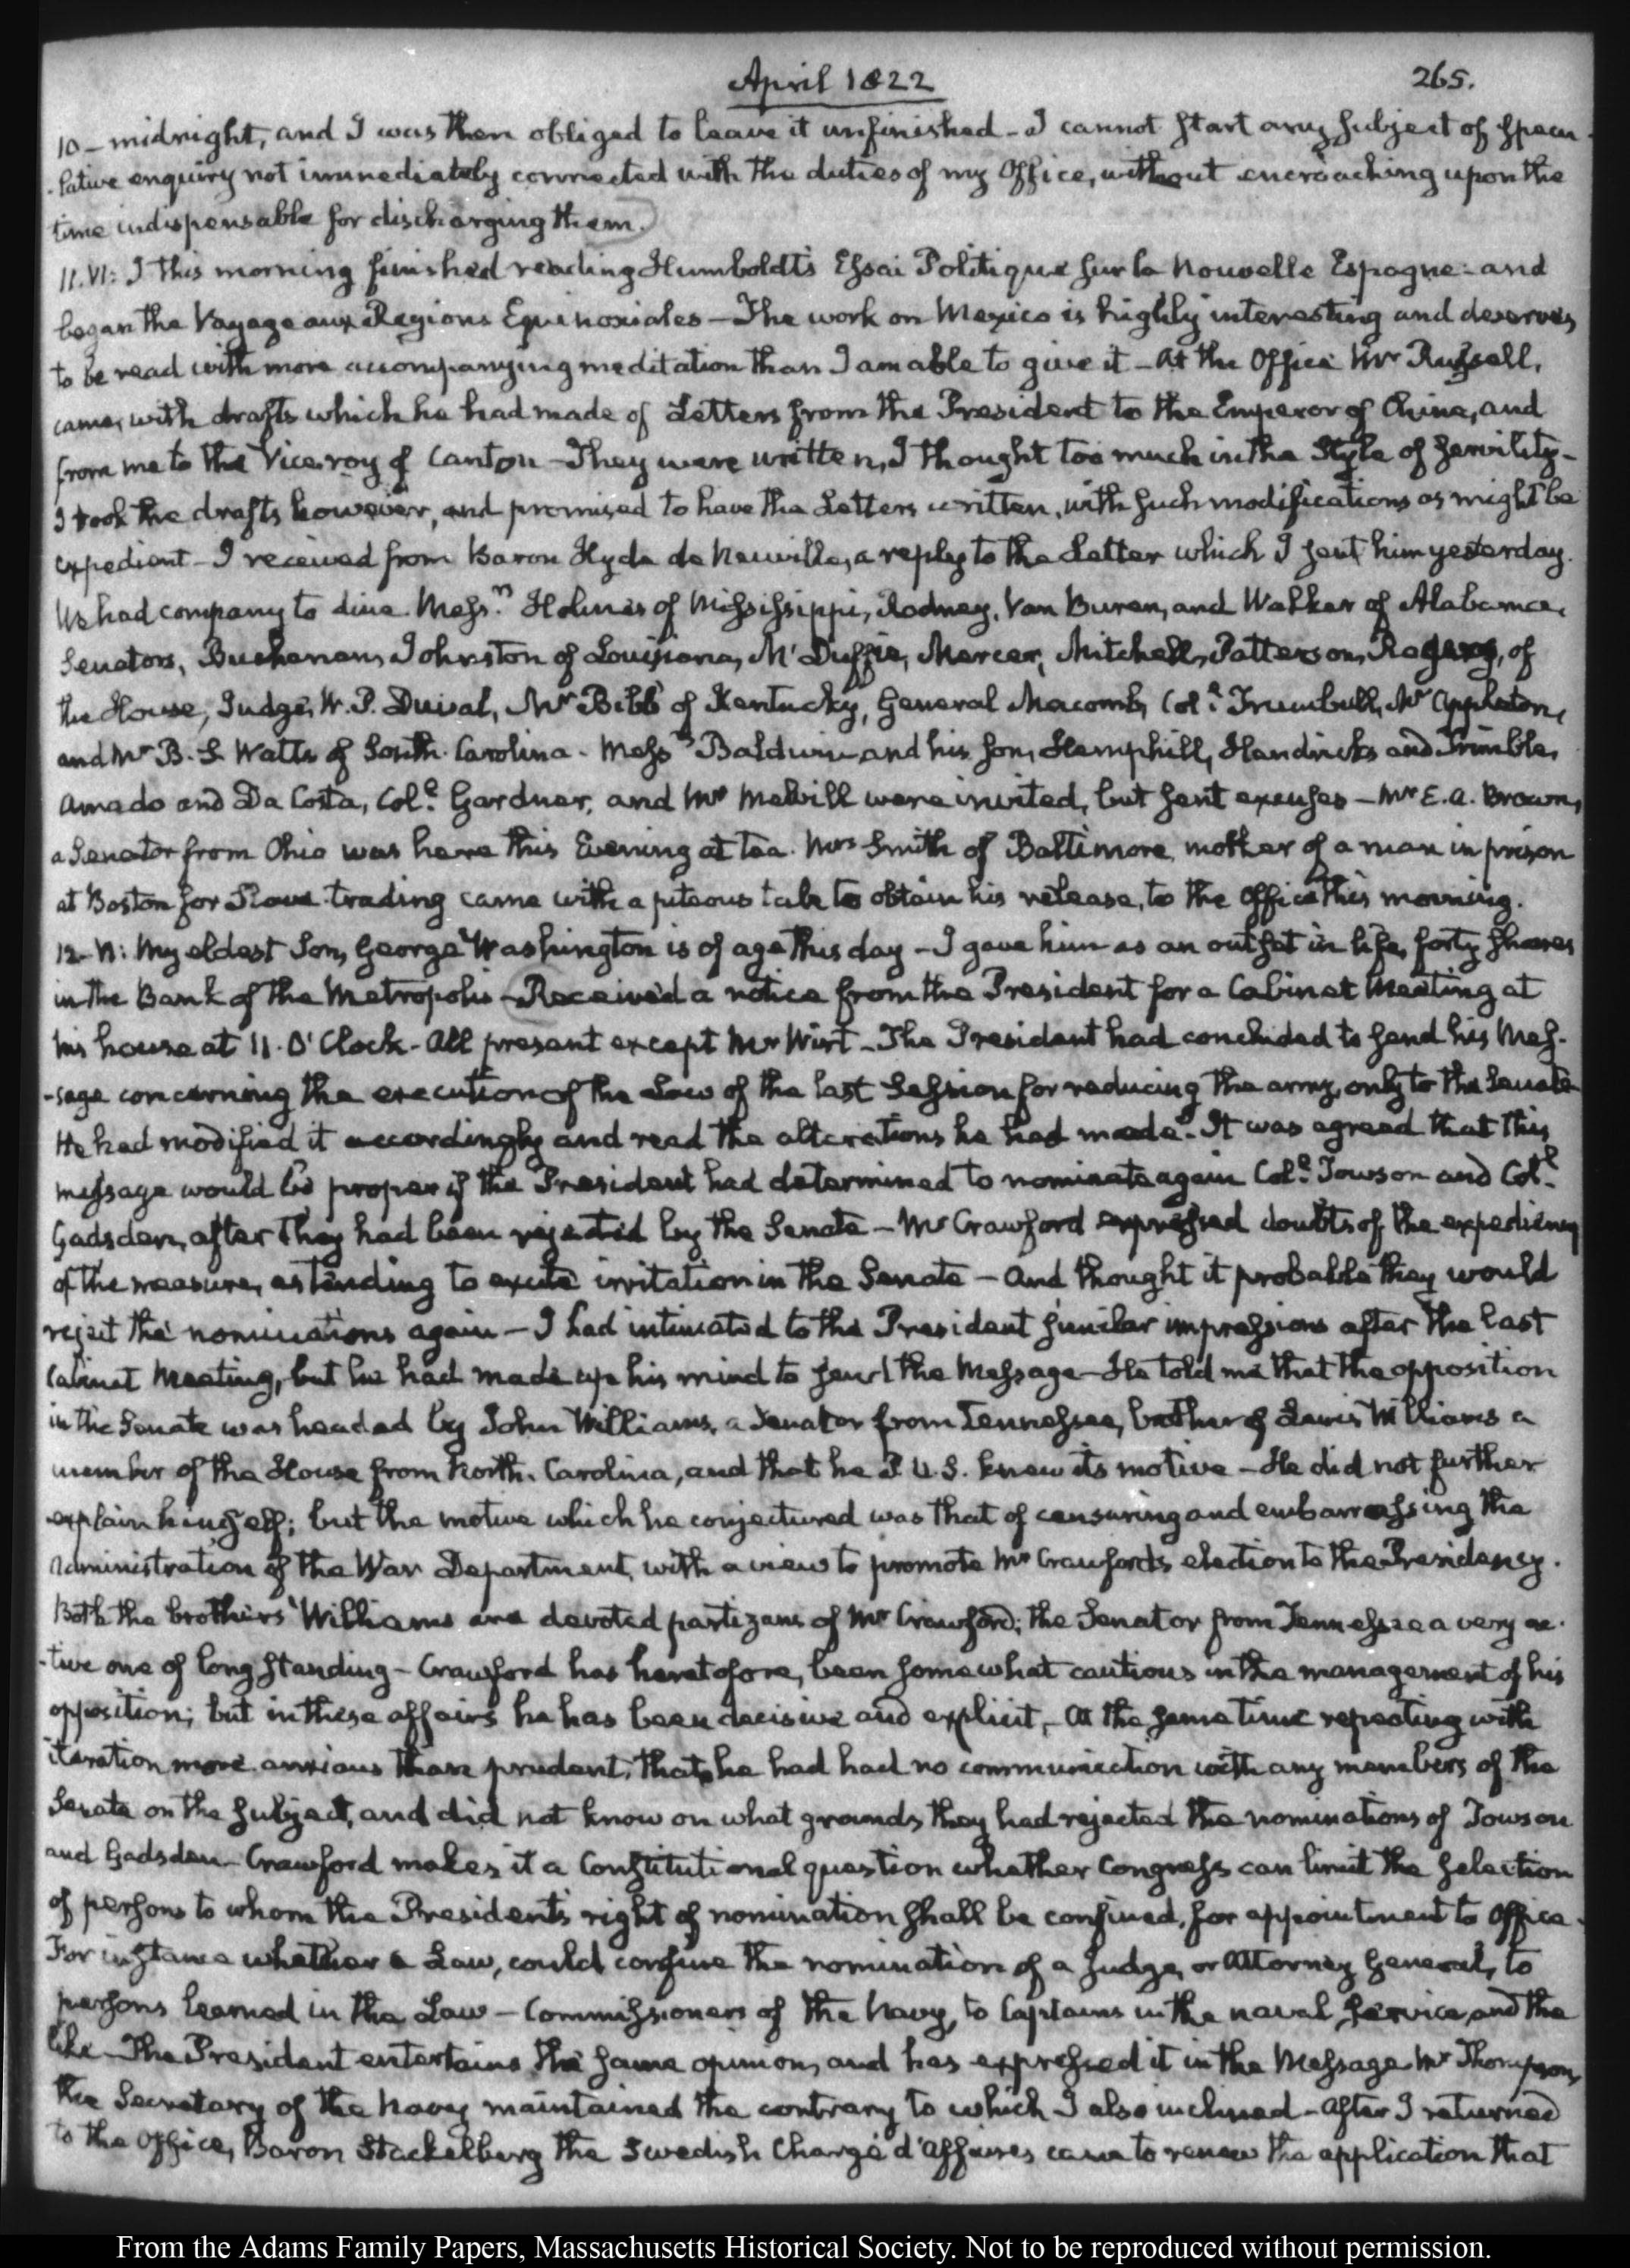 April 1822
265.
10 - midnight, and I was then obliged to leave it unfinished - I cannot start any subject of specu-
-lative enquiry not immediately connected with the duties of my Office, without encroaching upon the
time indispensable for discharging them.
11. VI: I this morning finished reading Humboldt's Essai Politique sur la Nouvelle Espagne - and
began the Voyage aux Regions Equinoxiales - The work on Mexico is highly interesting and deserves
to be read with more accompanying meditation than I am able to give it - At the Office Mr Russell,
came, with drafts which he had made of Letters from the President to the Emperor of China, and
from me to the Viceroy of Canton - They were written, I thought too much in the Style of servility -
I took the drafts however, and promised to have the Letters written, with such modifications as might be
expedient - I received from Baron Hyde de Neuville, a reply to the Letter which I sent him yesterday.
We had company to dine. Messrs Holmes of Mississippi, Rodney, Van Buren, and Walker of Alabama,
Senators, Buchanan, Johnston of Louisiana, McDuffie, Mercer, Mitchell, Patterson, Rogers, of
the House, Judge, W. P. Duval, Mr Bibb of Kentucky, General Macomb, Col. Trumbull, Mr Appleton,
and Mr B. S. Watts of South Carolina - Messrs Baldwin and his son, Hemphill, Hendricks and Trimble,
Amado and Da Costa, Col. Gardner, and Mr Melvill were invited, but sent excuses - Mr E. A. Brown,
a Senator from Ohio was here this Evening at tea. Mrs Smith of Baltimore, mother of a man in prison
at Boston for Slave-trading came with a piteous tale to obtain his release, to the Office this morning.
12. VI: My eldest Son, George Washington is of age this day - I gave him as an outset in life, forty shares
in the Bank of the Metropolis - Received a notice from the President for a Cabinet Meeting at
his house at 11. O'Clock - All present except Mr Wirt - The President had concluded to send his Mes-
-sage concerning the execution of the Law of the last Session for reducing the army, only to the Senate
He had modified it accordingly and read the alterations he had made. It was agreed that this
message would be proper if the President had determined to nominate again Col. Towson and Col.
Gadsden, after they had been rejected by the Senate - Mr Crawford expressed doubts of the expediency
of the measure, as tending to excite irritation in the Senate - And thought it probable they would
reject the nominations again - I had intimated to the President similar impressions after the last
Cabinet Meeting, but he had made up his mind to send the Message - He told me that the opposition
in the Senate was headed by John Williams, a Senator from Tennessee, brother of Lewis Williams a
member of the House from North Carolina, and that he P. U. S. knew its motive - He did not further
explain himself; but the motive which he conjectured was that of censuring and embarrassing the
administration of the War Department, with a view to promote Mr Crawford's election to the Presidency.
Both the brothers Williams are devoted partizans of Mr Crawford; the Senator from Tennessee a very ac-
-tive one of long standing - Crawford has heretofore, been somewhat cautious in the management of his
opposition; but in these affairs he has been decisive and explicit, - At the same time repeating with
iteration more anxious than prudent, that he had had no communication with any members of the
Senate on the subject, and did not know on what grounds they had rejected the nominations of Towson
and Gadsden - Crawford makes it a Constitutional question whether Congress can limit the selection
of persons to whom the President's right of nomination shall be confined, for appointment to Office.
For instance whether a Law, could confine the nomination of a Judge, or Attorney General, to
persons learned in the Law - Commissioners of the Navy, to Captains in the naval service, and the
like - The President entertains the same opinion, and has expressed it in the Message. Mr Thompson,
the Secretary of the Navy maintained the contrary to which I also inclined - After I returned
to the Office, Baron Stackelberg the Swedish Chargé d'Affaires came to renew the application that
From the Adams Family Papers, Massachusetts Historical Society. Not to be reproduced without permission.